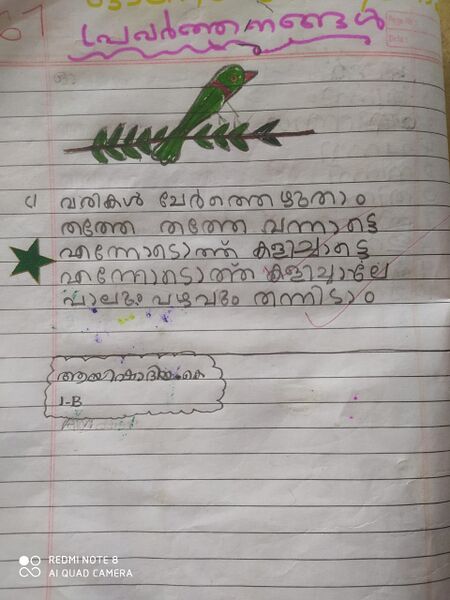 പ്രവർത്തനങ്ങൾ
c) വരികൾ ചേർത്തെഴുതാം
തത്തേ തത്തേ വന്നാട്ടെ
എന്നോടൊത്ത് കളിച്ചാട്ടെ
എന്നോടൊത്ത് കളിച്ചാലേ
പാലും പഴവും തന്നിടാം
1-B
REDMI NOTE 8
AI QUAD CAMERA